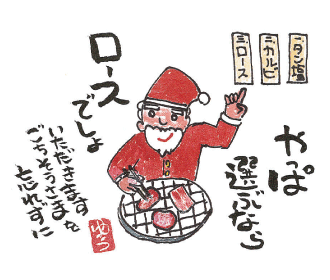 一タン塩
二カルビ
三ロース
やっぱ
選ぶなら
ロース
でしょ
いただきます
ごちそうさまを
忘れずに